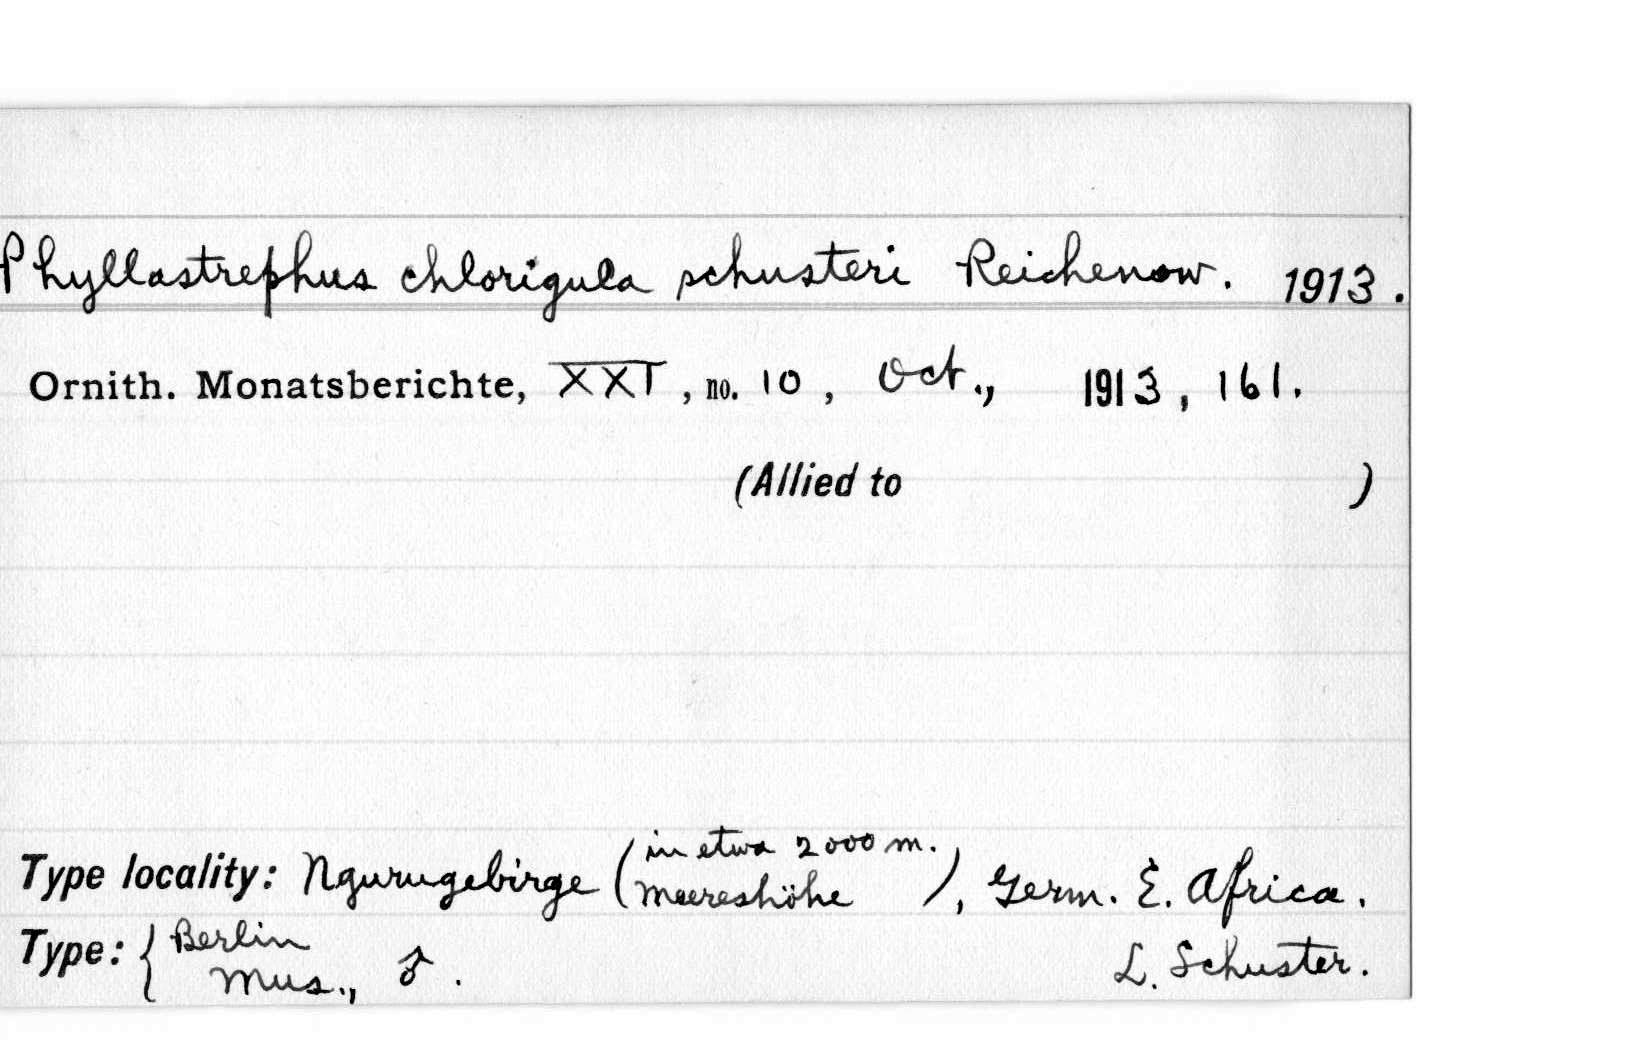 Phyllastrephus chlorigula schusteri Reichenow. 1913.
Ornith. Monatsberichte, XXI, no. 10, Oct., 1913, 161.
(Allied to )
in etwa 2000 m.
Type locality: Ngurugebirge (Meereshöhe), Germ. E. Africa.
Type: { Berlin
Mus., ♂. L. Schuster.